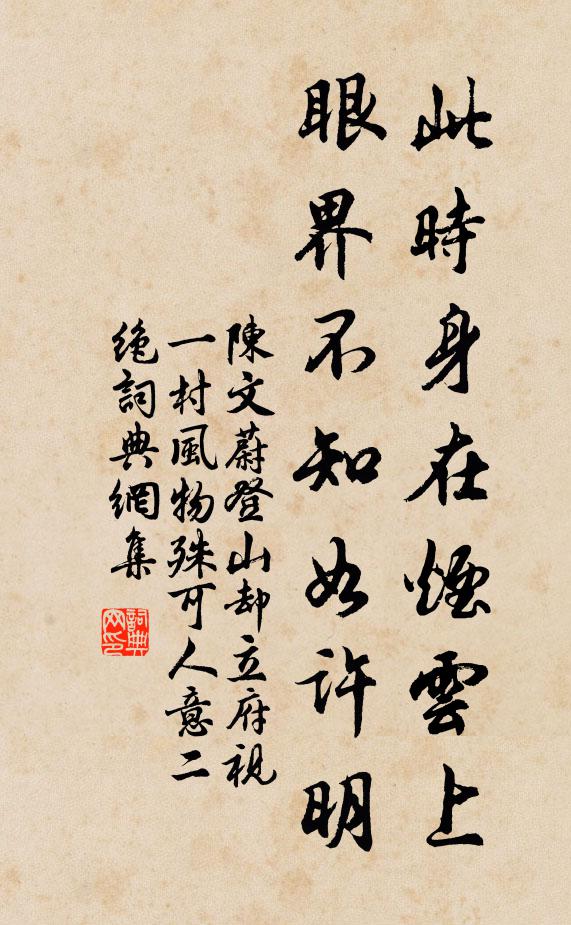 此時身在煙雲上
眼界不知如許明
陳文蔚登山却立府視
一村風物殊可人意二
絶詞典網集
詞典網印